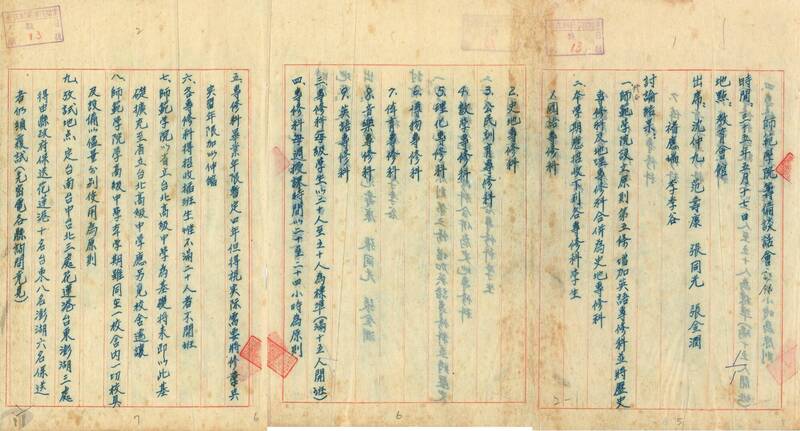 師範學院籌備談話會記錄
時間：三十五年五月十七日
地點：教育會館
出席：沈仲九 范壽康 張同光 張金潤
褚應瑞 李季谷
討論結果：
一、師範學院設立原則第五條 增加英語專修科並將歷史
專修科及地理專修科合併為史地專修科
二、本學期應招收下列各專修科學生
1.國語專修科
2.史地專修科
3.公民訓育專修科
4.數學專修科
5.理化專修科
6.博物專修科
7.體育專修科
8.音樂專修科
9.英語專修科
三、專修科每級學生以二十人至五十人為標準（滿十五人開班）
四、專修科每週授課時間以二十至二十四小時為原則
五、專修科畢業年限暫定四年但得視實際需要將修業與
實習年限加以伸縮
六、各專修科得招收插班生惟不滿二十人者不開班
七、師範學院以省立台北高級中學為基礎將來即以此基
礎擴充至省立台北高級中學應另覓校舍遷讓
八、師範學院學高級中學本學期雖同在一校舍內一切校具
及設備以儘量分別使用為原則
九、考試地點定台南台中台北三處花蓮港台東澎湖三處
得由縣政府保送花蓮港十名台東八名澎湖六名保送
者仍須複試（先省電各縣詢問意見）